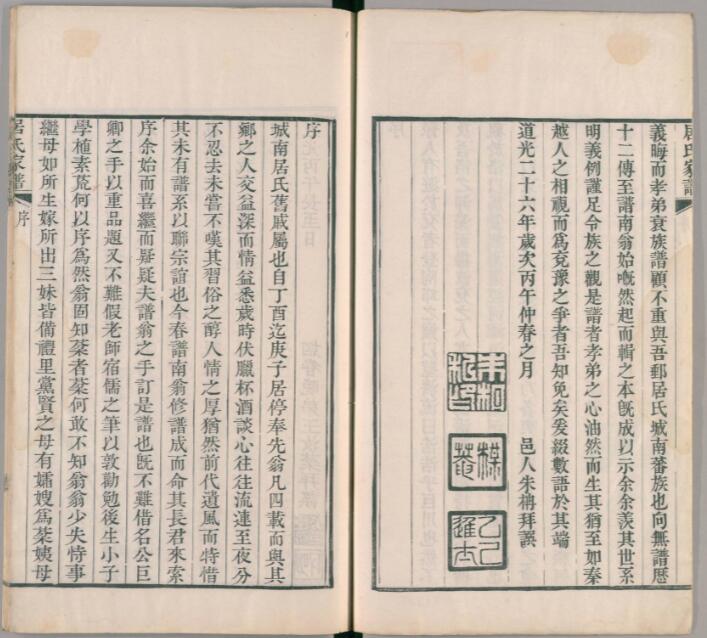 居氏家譜
義晦而孝弟衰族譜顧不重與吾郵居氏城南蕃族也向無譜歷
十二傳至譜南翁始嘅然起而輯之本既成以示余余羨其世系
明義例謹足令族之觀是譜者孝弟之心油然而生其猶至如秦
越人之相視而爲兗豫之爭者吾知免矣爰綴數語於其端
道光二十六年歲次丙午仲春之月　邑人朱拜譔
楳菴
乙巳進士
序
城南居氏舊戚屬也自丁酉迄庚子居停奉先翁凡四載而與其
鄉之人交益深而情益悉歲時伏臘杯酒談心往往流連至夜分
不忍去未嘗不嘆其習俗之醇人情之厚猶然前代遺風而特惜
其未有譜系以聯宗誼也今春譜南翁修譜成而命其長君來索
序余始而喜繼而疑疑夫譜翁之手訂是譜也旣不難借名公巨
卿之手以重品題又不難假老師宿儒之筆以敦勸勉後生小子
學植素荒何以序爲然翁固知棻者棻何敢不知翁翁少失恃事
繼母如所生嫁所出三妹皆備禮里黨賢之母有孀嫂爲棻姨母
居氏家譜　序